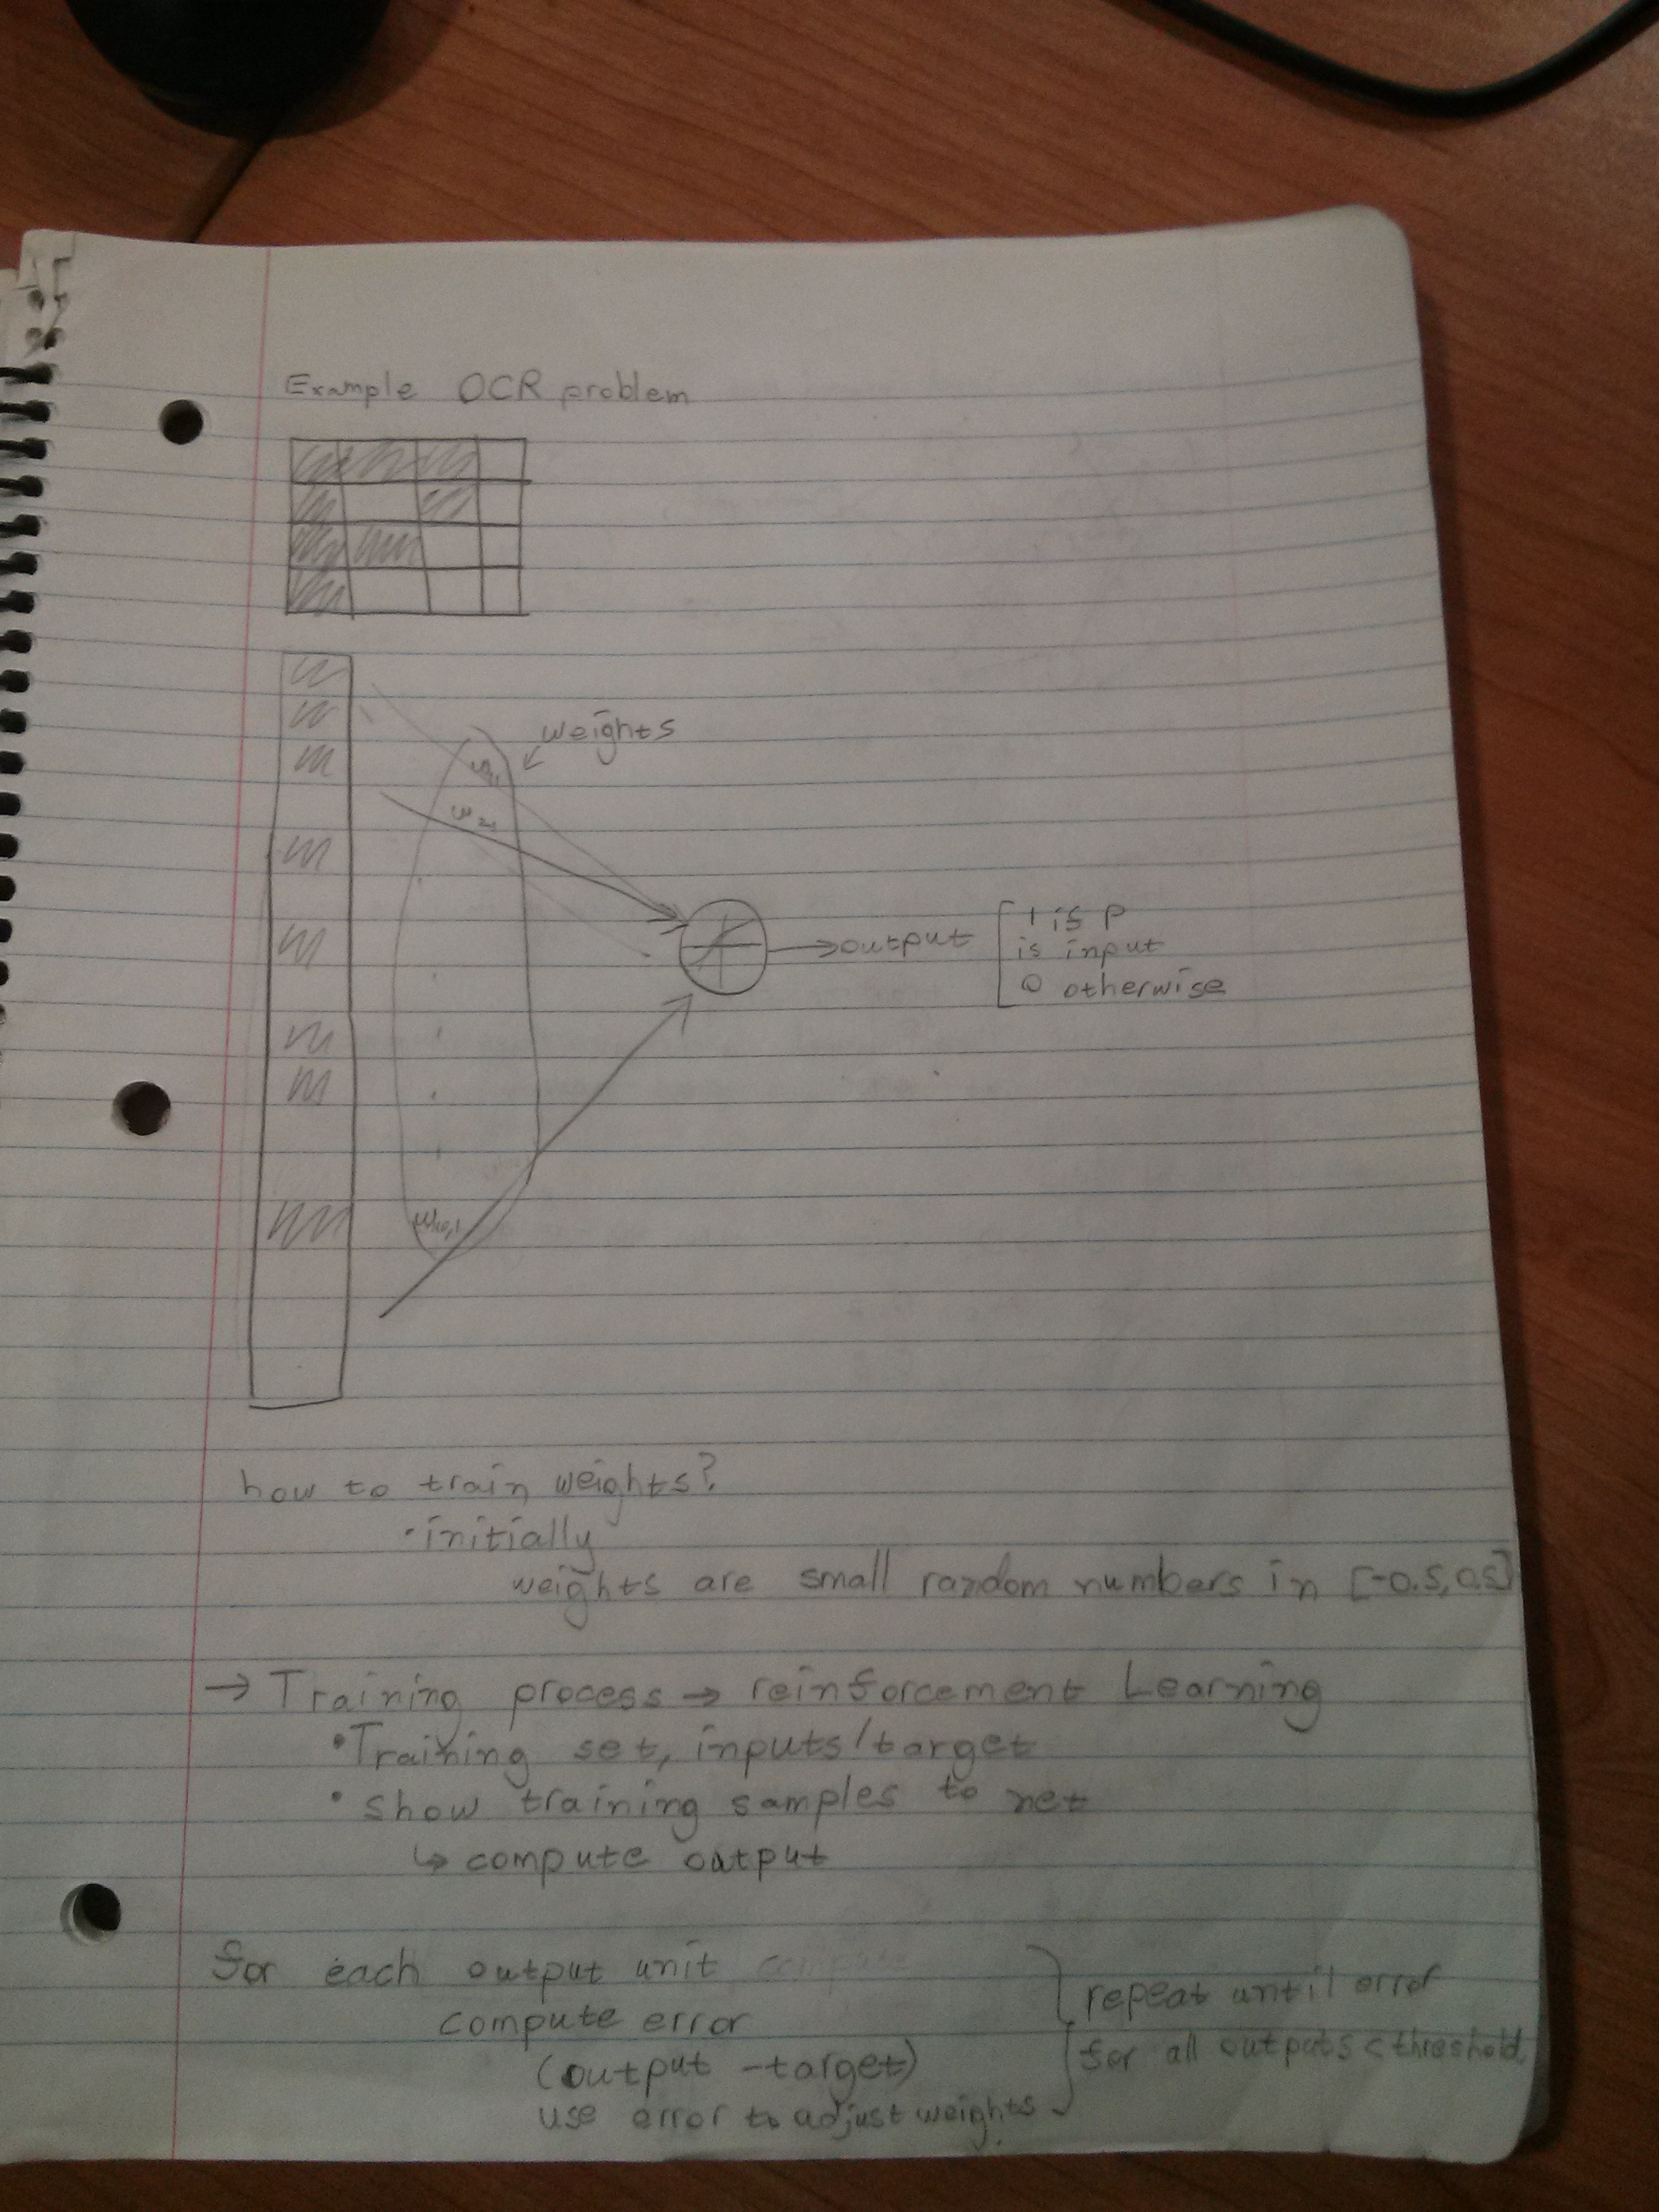 Example OCR problem
weights
w11
w21
output
1 is P
is input
0 otherwise
w16,1
how to train weights?
• initially
weights are small random numbers in [-0.5, 0.5]
→ Training process → reinforcement Learning
• Training set, inputs/target
• show training samples to net
↳ compute output
for each output unit compute
compute error
(output - target)
use error to adjust weights
repeat until error
for all outputs < threshold.